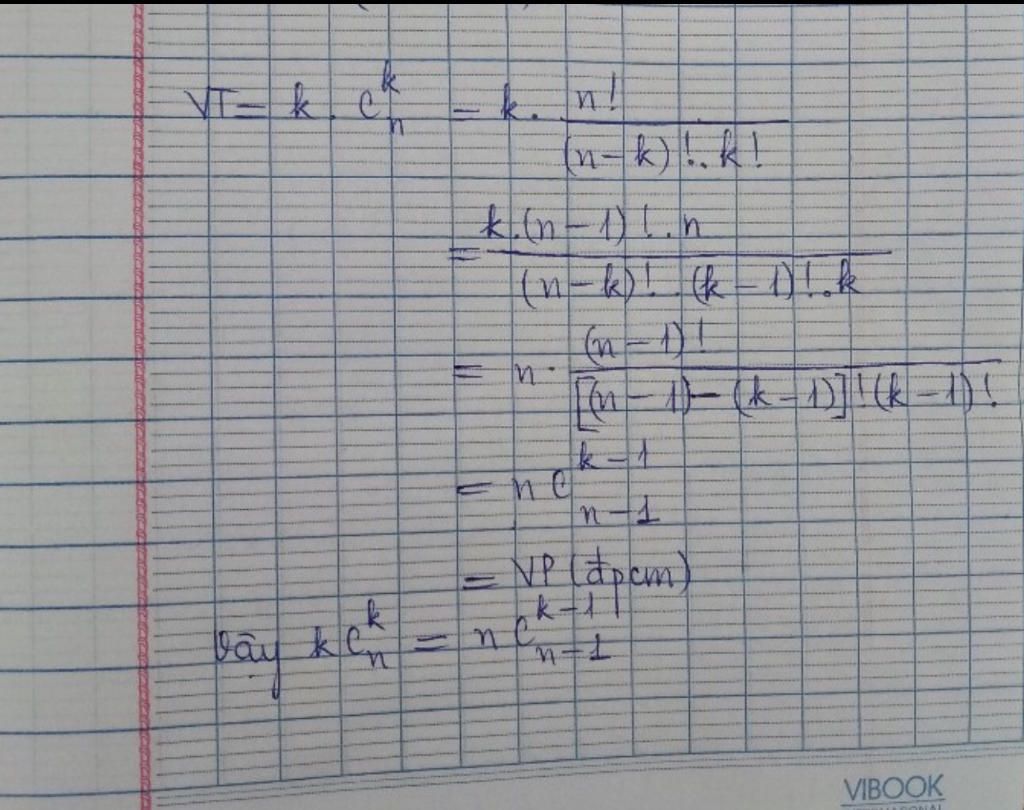 VT = k . C_n^k = k . \frac{n!}{(n-k)! . k!}
= \frac{k.(n-1)! . n}{(n-k)! . (k-1)! . k}
= n . \frac{(n-1)!}{[(n-1)-(k-1)]!(k-1)!}
= n C_{n-1}^{k-1}
= VP (đpcm)
Vậy k C_n^k = n C_{n-1}^{k-1}
VIBOOK